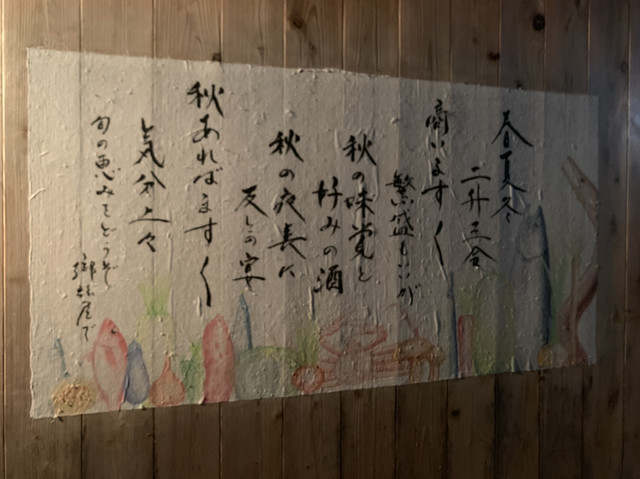 春夏冬
二升五合
商いますく
繁盛もいいが
秋の味覚と
好みの酒
秋の夜長に
友との宴
秋あればますく
気分上々
旬の恵みをどうぞ